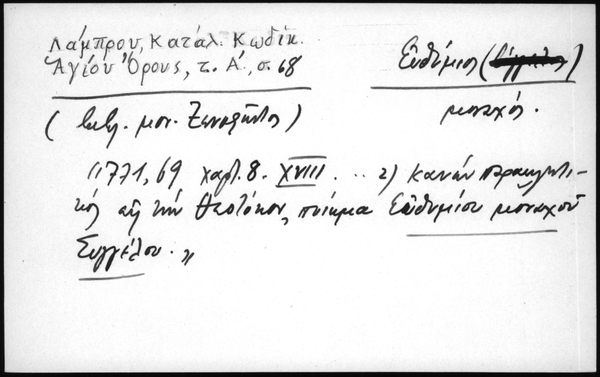 Λάμπρου, Κατάλ. Κωδίκ.
Ἁγίου Ὄρους, τ. Α΄, σ. 68
Εὐθύμιος
μοναχός.
(βιβλ. μον. Ξενοφῶντος)
"771,69 χαρτ. 8. XVIII ... 2) Κανὼν παρακλητι-
κὸς εἰς τὴν Θεοτόκον, ποίημα Εὐθυμίου μοναχοῦ
Συγγέλου. "